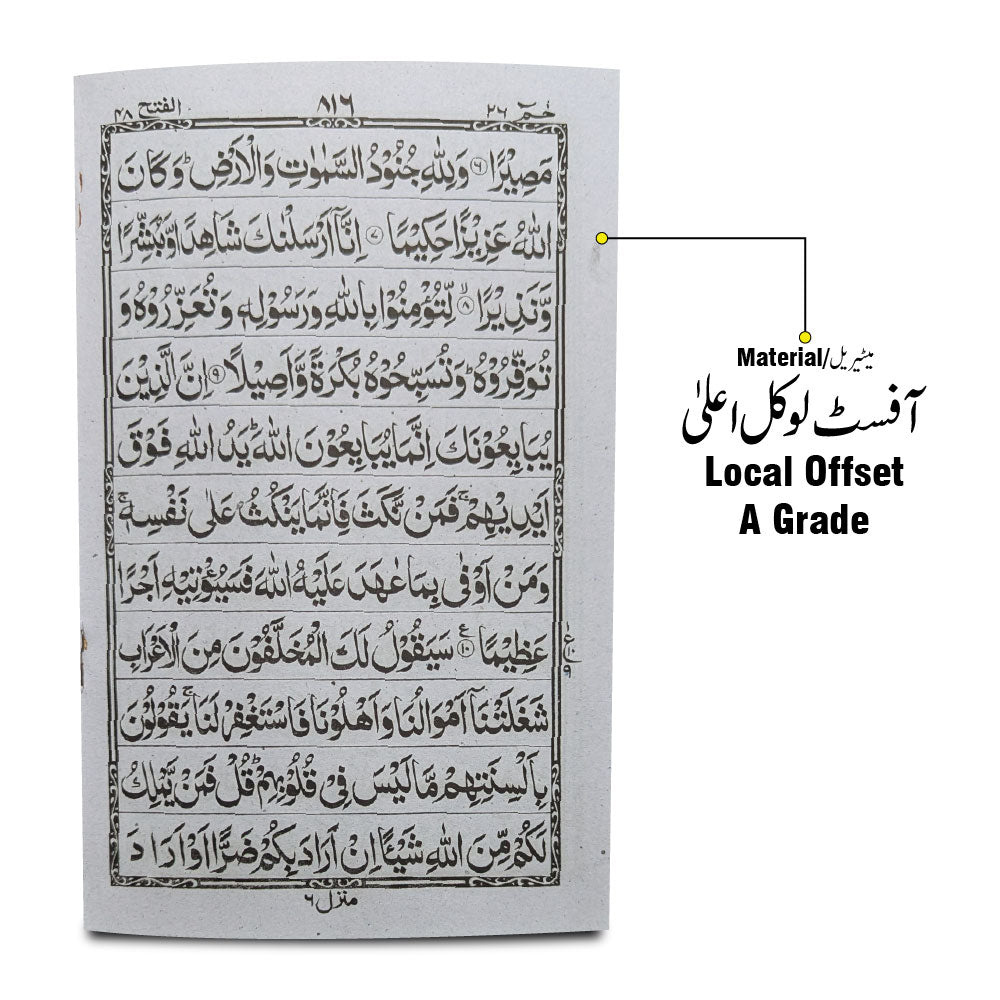 حٰمٓ ٢٦ ٨١٦ الفتح ٤٨
مَصِيْرًا ۝٦ وَلِلّٰهِ جُنُوْدُ السَّمٰوٰتِ وَالْاَرْضِ ؕ وَكَانَ
اللّٰهُ عَزِيْزًا حَكِيْمًا ۝٧ اِنَّاۤ اَرْسَلْنٰكَ شَاهِدًا وَّمُبَشِّرًا
وَّنَذِيْرًا ۙ۝٨ لِّتُؤْمِنُوْا بِاللّٰهِ وَرَسُوْلِهٖ وَتُعَزِّرُوْهُ وَ
تُوَقِّرُوْهُ ؕ وَتُسَبِّحُوْهُ بُكْرَةً وَّاَصِيْلًا ۝٩ اِنَّ الَّذِيْنَ
يُبَايِعُوْنَكَ اِنَّمَا يُبَايِعُوْنَ اللّٰهَ ؕ يَدُ اللّٰهِ فَوْقَ
اَيْدِيْهِمْ ۚ فَمَنْ نَّكَثَ فَاِنَّمَا يَنْكُثُ عَلٰى نَفْسِهٖ ۚ
وَمَنْ اَوْفٰى بِمَا عٰهَدَ عَلَيْهُ اللّٰهَ فَسَيُؤْتِيْهِ اَجْرًا
عَظِيْمًا ۝١٠ ع سَيَقُوْلُ لَكَ الْمُخَلَّفُوْنَ مِنَ الْاَعْرَابِ
ع ١٠ ٩
شَغَلَتْنَاۤ اَمْوَالُنَا وَاَهْلُوْنَا فَاسْتَغْفِرْ لَنَا ۚ يَقُوْلُوْنَ
بِاَلْسِنَتِهِمْ مَّا لَيْسَ فِيْ قُلُوْبِهِمْ ؕ قُلْ فَمَنْ يَّمْلِكُ
لَكُمْ مِّنَ اللّٰهِ شَيْـًٔا اِنْ اَرَادَ بِكُمْ ضَرًّا اَوْ اَرَادَ
منزل ٦
Material/میٹیریل
آفسٹ لوکل اعلیٰ
Local Offset
A Grade